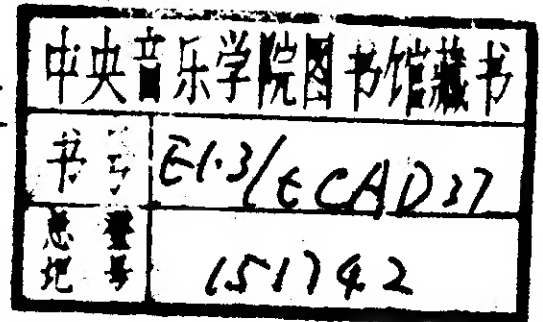 中央音乐学院图书馆藏书
书号 E1.3/ECAD37
总登记号 151742